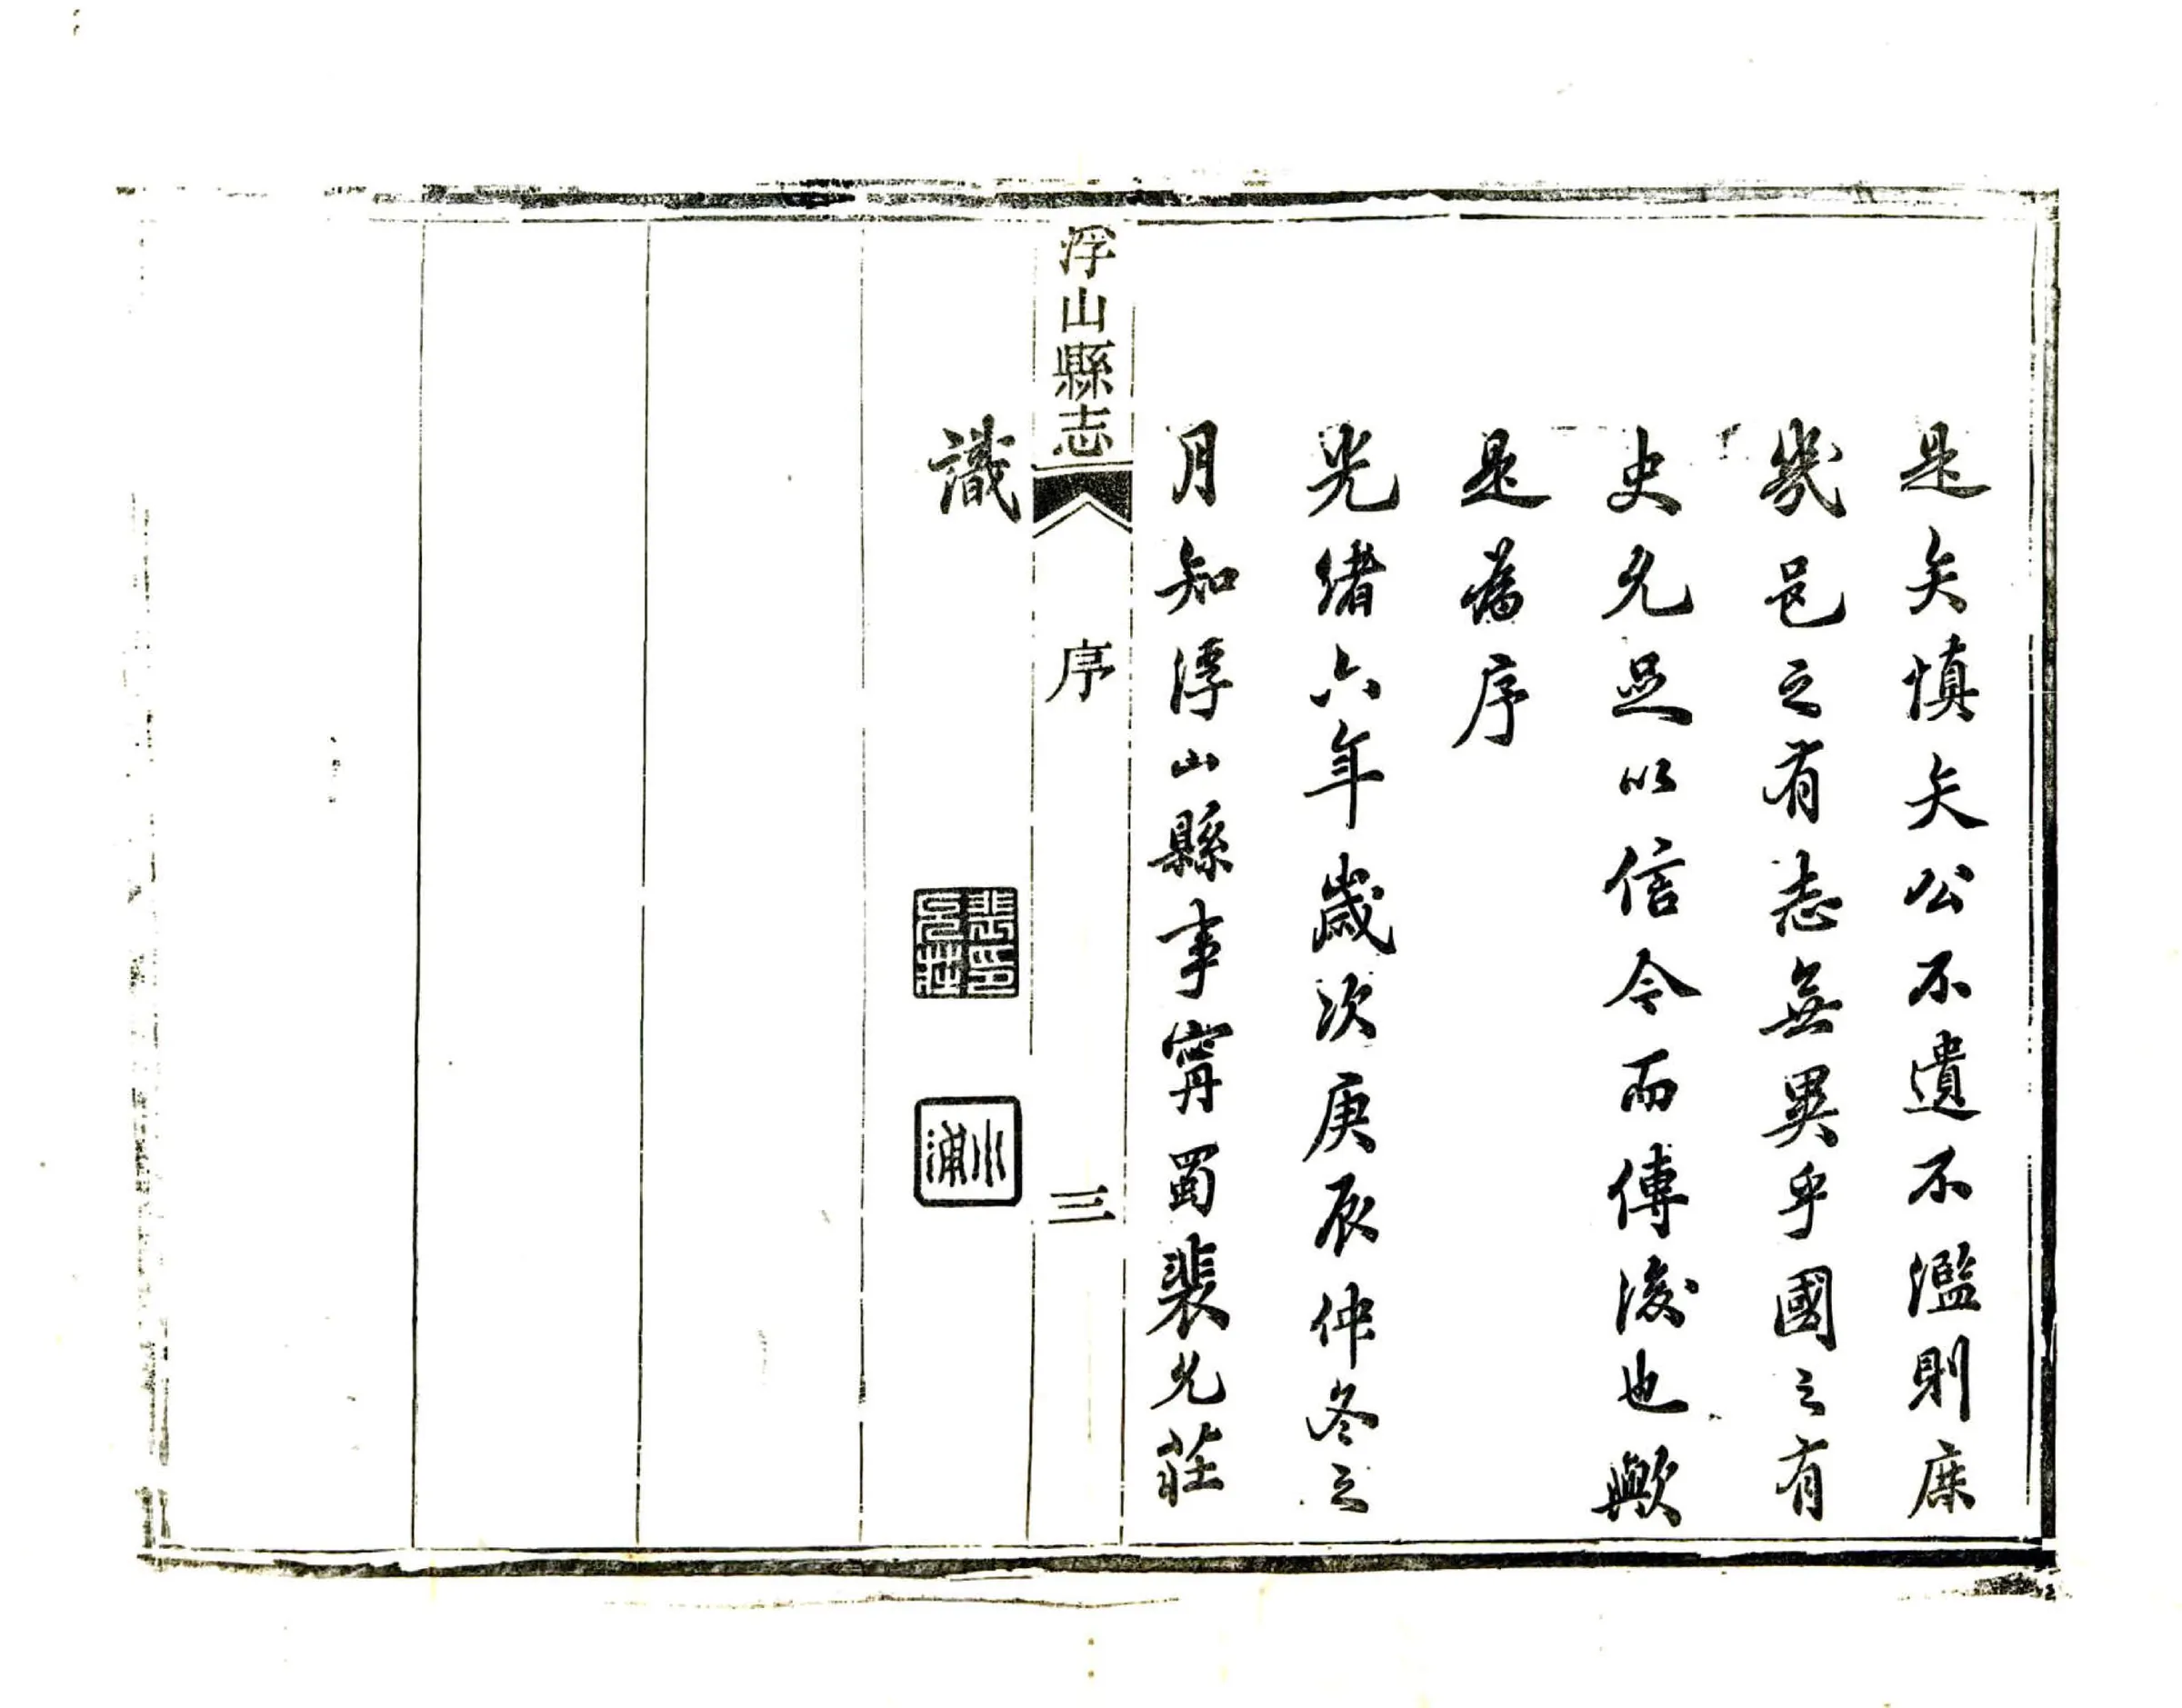 是矣慎矣公不遺不濫則庶
幾邑之有志無異乎國之有
史允足以信今而傳後也歟
是為序
光緒六年歲次庚辰仲冬之
月知浮山縣事寗蜀裴允莊
浮山縣志 序 三
識
裴印允莊